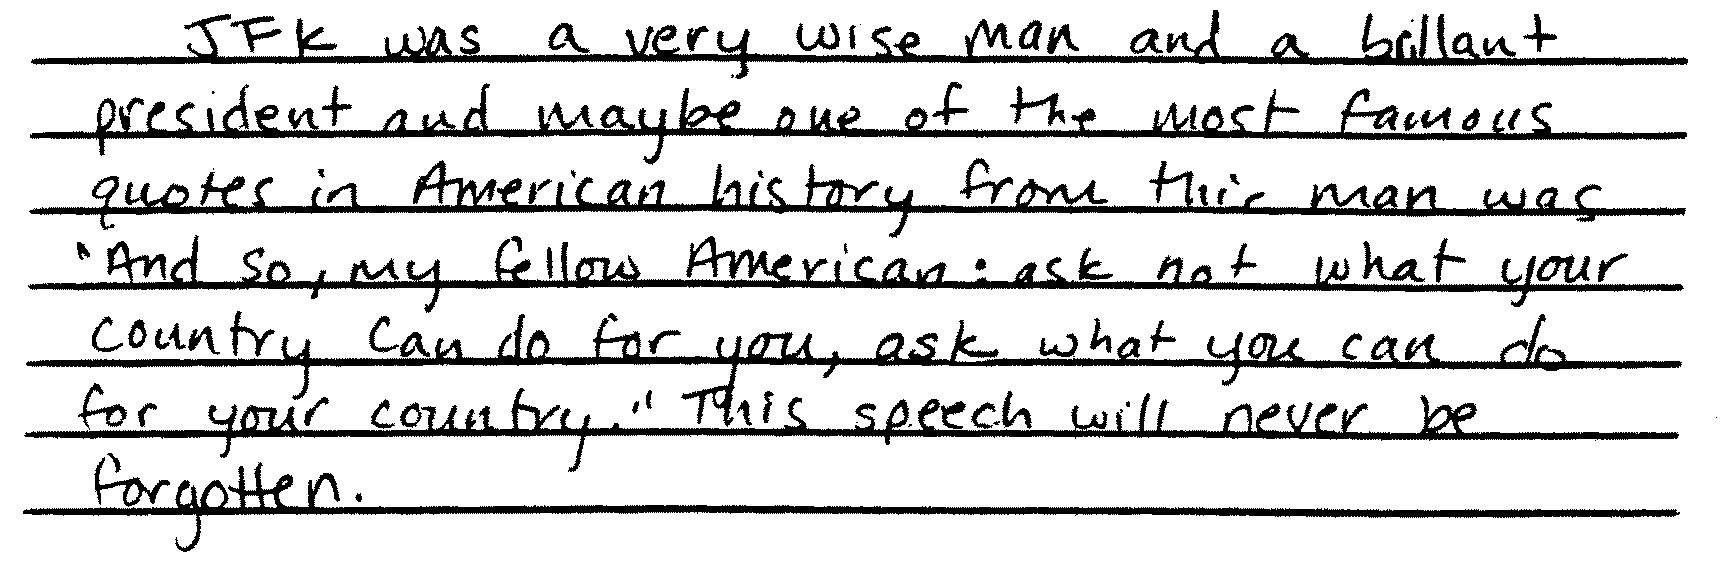 JFK was a very wise man and a brillant
president and maybe one of the most famous
quotes in American history from this man was
"And so, my fellow American: ask not what your
country can do for you, ask what you can do
for your country." This speech will never be
forgotten.